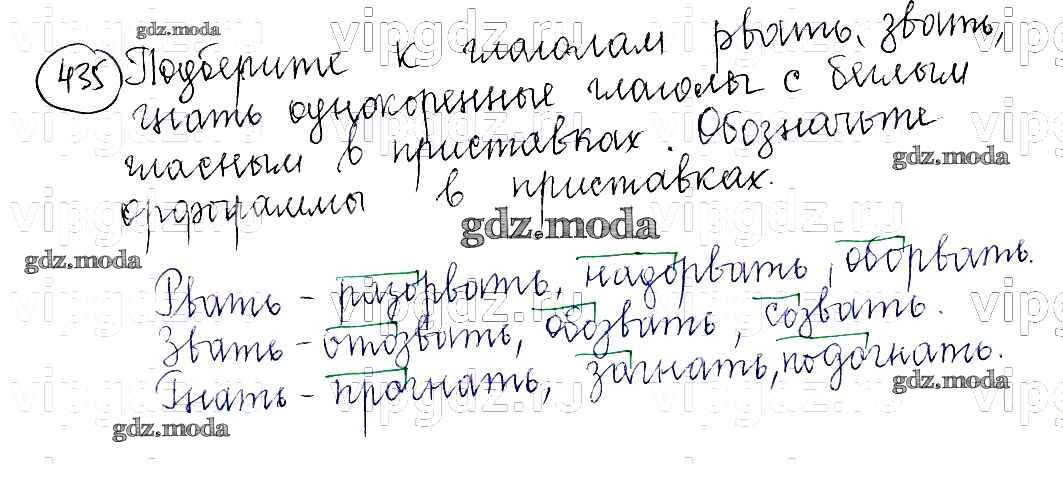 435 Подберите к глаголам рвать, звать,
гнать однокоренные глаголы с беглым
гласным в приставках. Обозначьте
орфограммы в приставках.
Рвать – разорвать, надорвать, оборвать.
Звать – отозвать, обозвать, созвать.
Гнать – прогнать, загнать, подогнать.
gdz.moda
gdz.moda
gdz.moda
gdz.moda
gdz.moda
gdz.moda